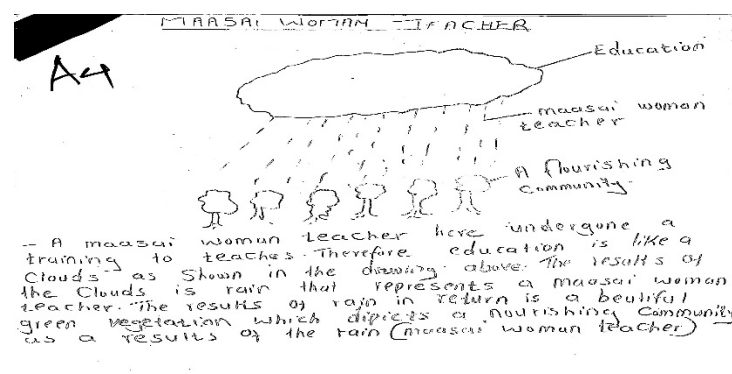 MAASAI WOMAN - TEACHER
A4
Education
maasai woman
teacher
A flourishing
Community.
- A maasai woman teacher here undergone a
training to teaches. Therefore education is like a
Clouds as Shown in the drawing above. The results of
the Clouds is rain that represents a maasai woman
teacher. The results of rain in return is a beutiful
green vegetation which dipicts a nourishing Community
as a results of the rain (maasai woman teacher)